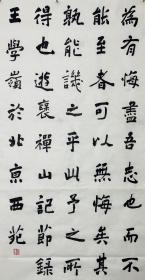 為有悔盡吾志也而不
能至者可以無悔矣其
孰能譏之乎此予之所
得也遊褒禪山記節錄
王學嶺於北京西苑